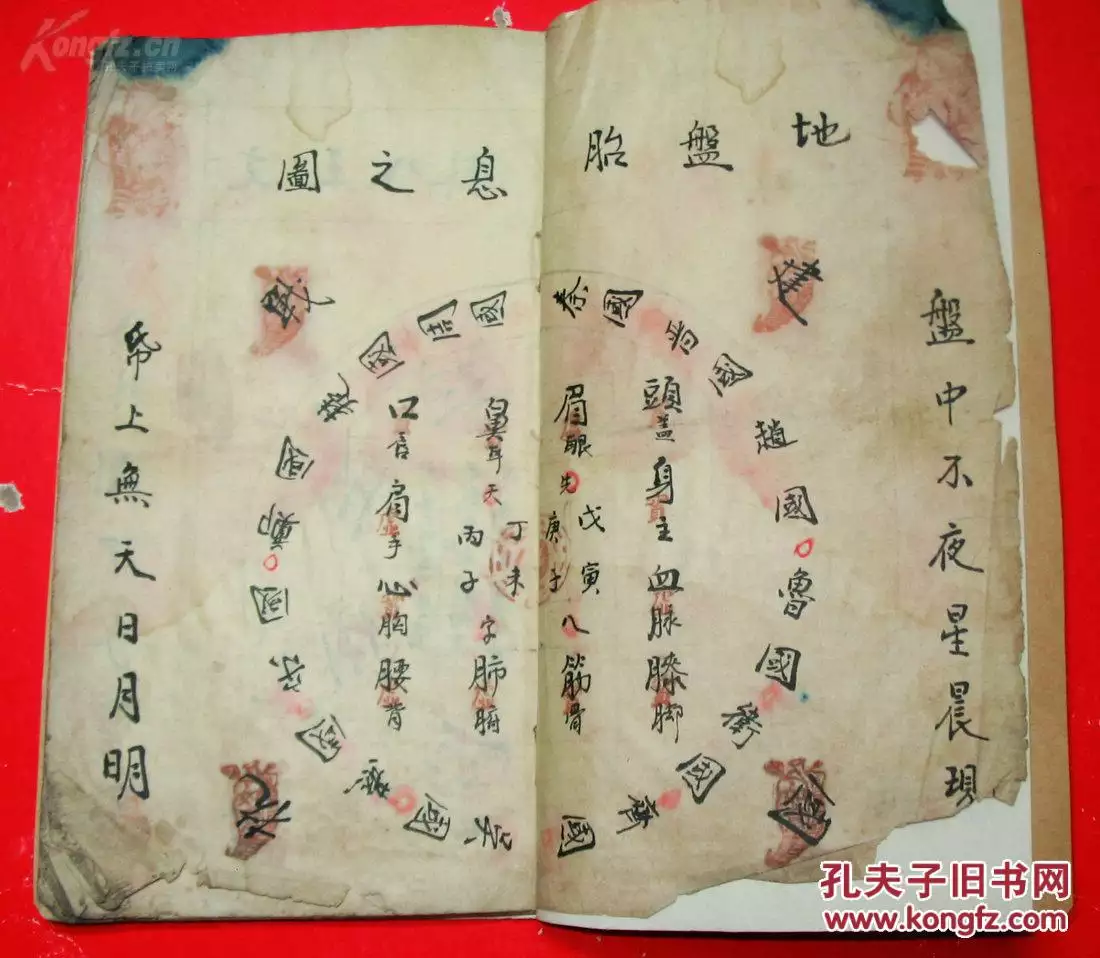 地盤胎息之圖
盤中不夜星晨現
頭蓋身主血脉膝脚
眉眼先戊寅八筋骨
庚子
丁未
丙子
鼻耳天字肺腑
口舌肩手心胸腰背
帋上無天日月明
蔡國
晋國
趙國
魯國
衛國
齊國
吴國
燕國
宋國
鄭國
楚國
秦國
周國
Kongfz.cn
孔夫子旧书网
www.kongfz.com